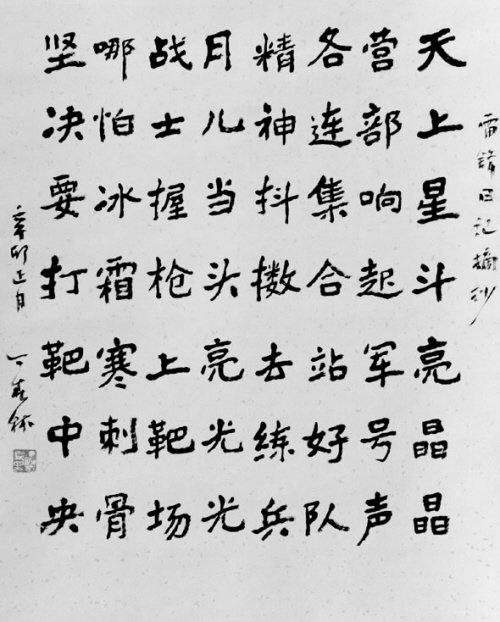 雷锋日记摘抄
天上星斗亮晶晶
营部响起军号声
各连集合站好队
精神抖擞去练兵
月儿当头亮光光
战士握枪上靶场
哪怕冰霜寒刺骨
坚决要打靶中央
辛卯正月